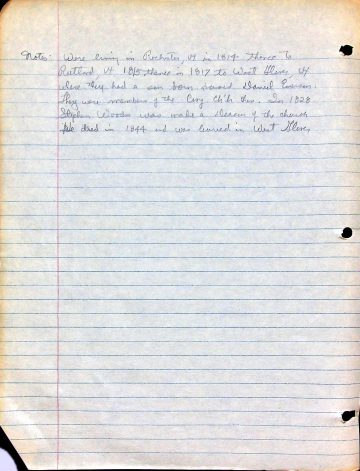 Notes: Were living in Rochester, Vt in 1814 thence to
Rutland, Vt 1815 thence in 1817 to West Glover, Vt
where they had a son born named Daniel Emerson
They were members of the Cong Ch'h there. In 1828
Stephen Woods was made a Deacon of the church
He died in 1844 and was buried in West Glover